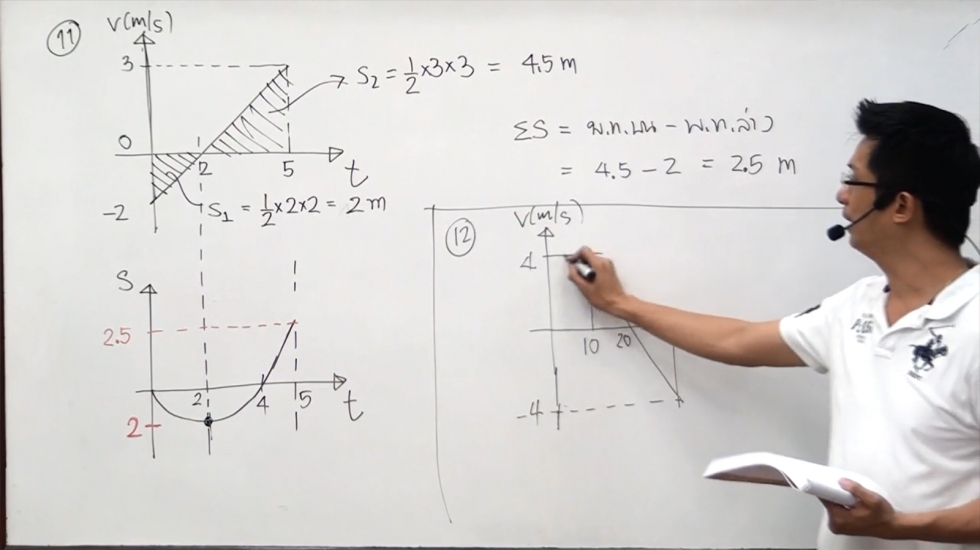 11
V(m/s)
3
0
2
5
t
-2
S₂ = ½×3×3 = 4.5 m
S₁ = ½×2×2 = 2 m
ΣS = พ.ท.บน - พ.ท.ล่าง
= 4.5 - 2 = 2.5 m
S
2.5
2
4
5
t
2
12
V(m/s)
4
10
20
-4